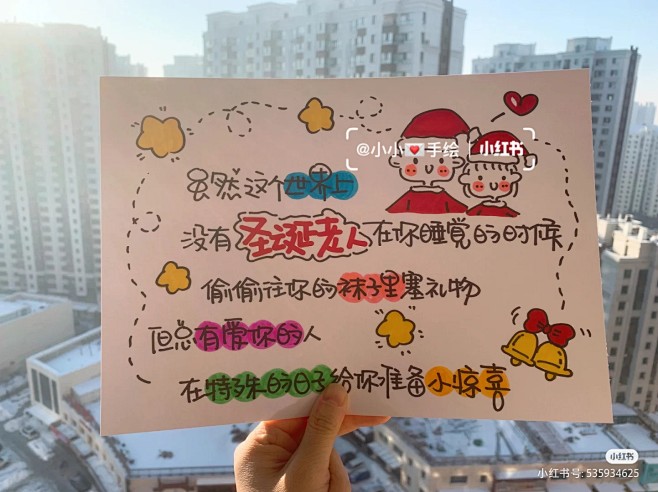 @小小💌手绘 小红书
虽然这个世界上
没有圣诞老人在你睡觉的时候
偷偷往你的袜子里塞礼物
但总有爱你的人
在特殊的日子给你准备小惊喜
小红书
小红书号: 535934625